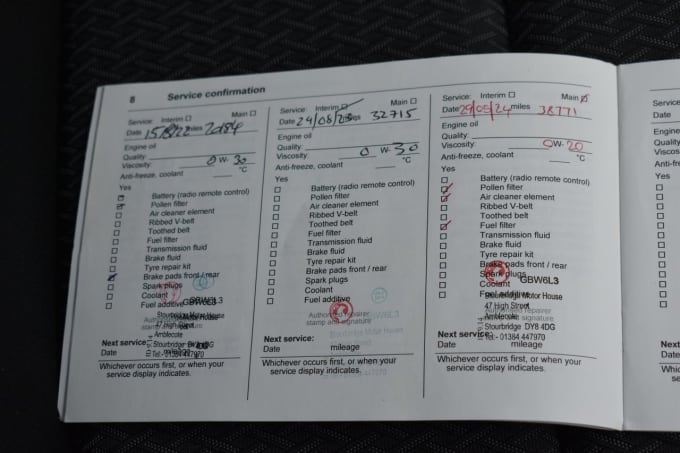 8 Service confirmation
Service: Interim ☐ Main ☐
Date miles
Engine oil
Quality
Viscosity: 0 W- 30
Anti-freeze, coolant °C
Yes
Battery (radio remote control)
Pollen filter
Air cleaner element
Ribbed V-belt
Toothed belt
Fuel filter
Transmission fluid
Brake fluid
Tyre repair kit
Brake pads front / rear
Spark plugs
Coolant
Fuel additive GBW6L3
Stourbridge Motor House
47 High Street
Amblecote
Next service: Stourbridge
Date mileage Tel:- 01384 447970
Whichever occurs first, or when your
service display indicates.
Service: Interim ☑ Main ☐
Date 24/08/23 miles 32715
Engine oil
Quality
Viscosity: 0 W- 30
Anti-freeze, coolant °C
Yes
Battery (radio remote control)
Pollen filter
Air cleaner element
Ribbed V-belt
Toothed belt
Fuel filter
Transmission fluid
Brake fluid
Tyre repair kit
Brake pads front / rear
Spark plugs
Coolant
Fuel additive
Authorised repairer GBW6L3
stamp and signature
Stourbridge Motor House
Next service:
Date mileage
Whichever occurs first, or when your
service display indicates.
Service: Interim ☐ Main ☑
Date 29/08/24 miles 38771
Engine oil
Quality
Viscosity: 0W- 20
Anti-freeze, coolant °C
Yes
Battery (radio remote control)
Pollen filter
Air cleaner element
Ribbed V-belt
Toothed belt
Fuel filter
Transmission fluid
Brake fluid
Tyre repair kit
Brake pads front / rear
Spark plugs GBW6L3
Coolant
Fuel additive Stourbridge Motor House
47 High Street
Amblecote
Stourbridge DY8 4DG
Next service: Tel:- 01384 447970
Date mileage
Whichever occurs first, or when your
service display indicates.
Service
Date
Engine
Quality
Viscos
Anti-fr
Yes
Next
Date